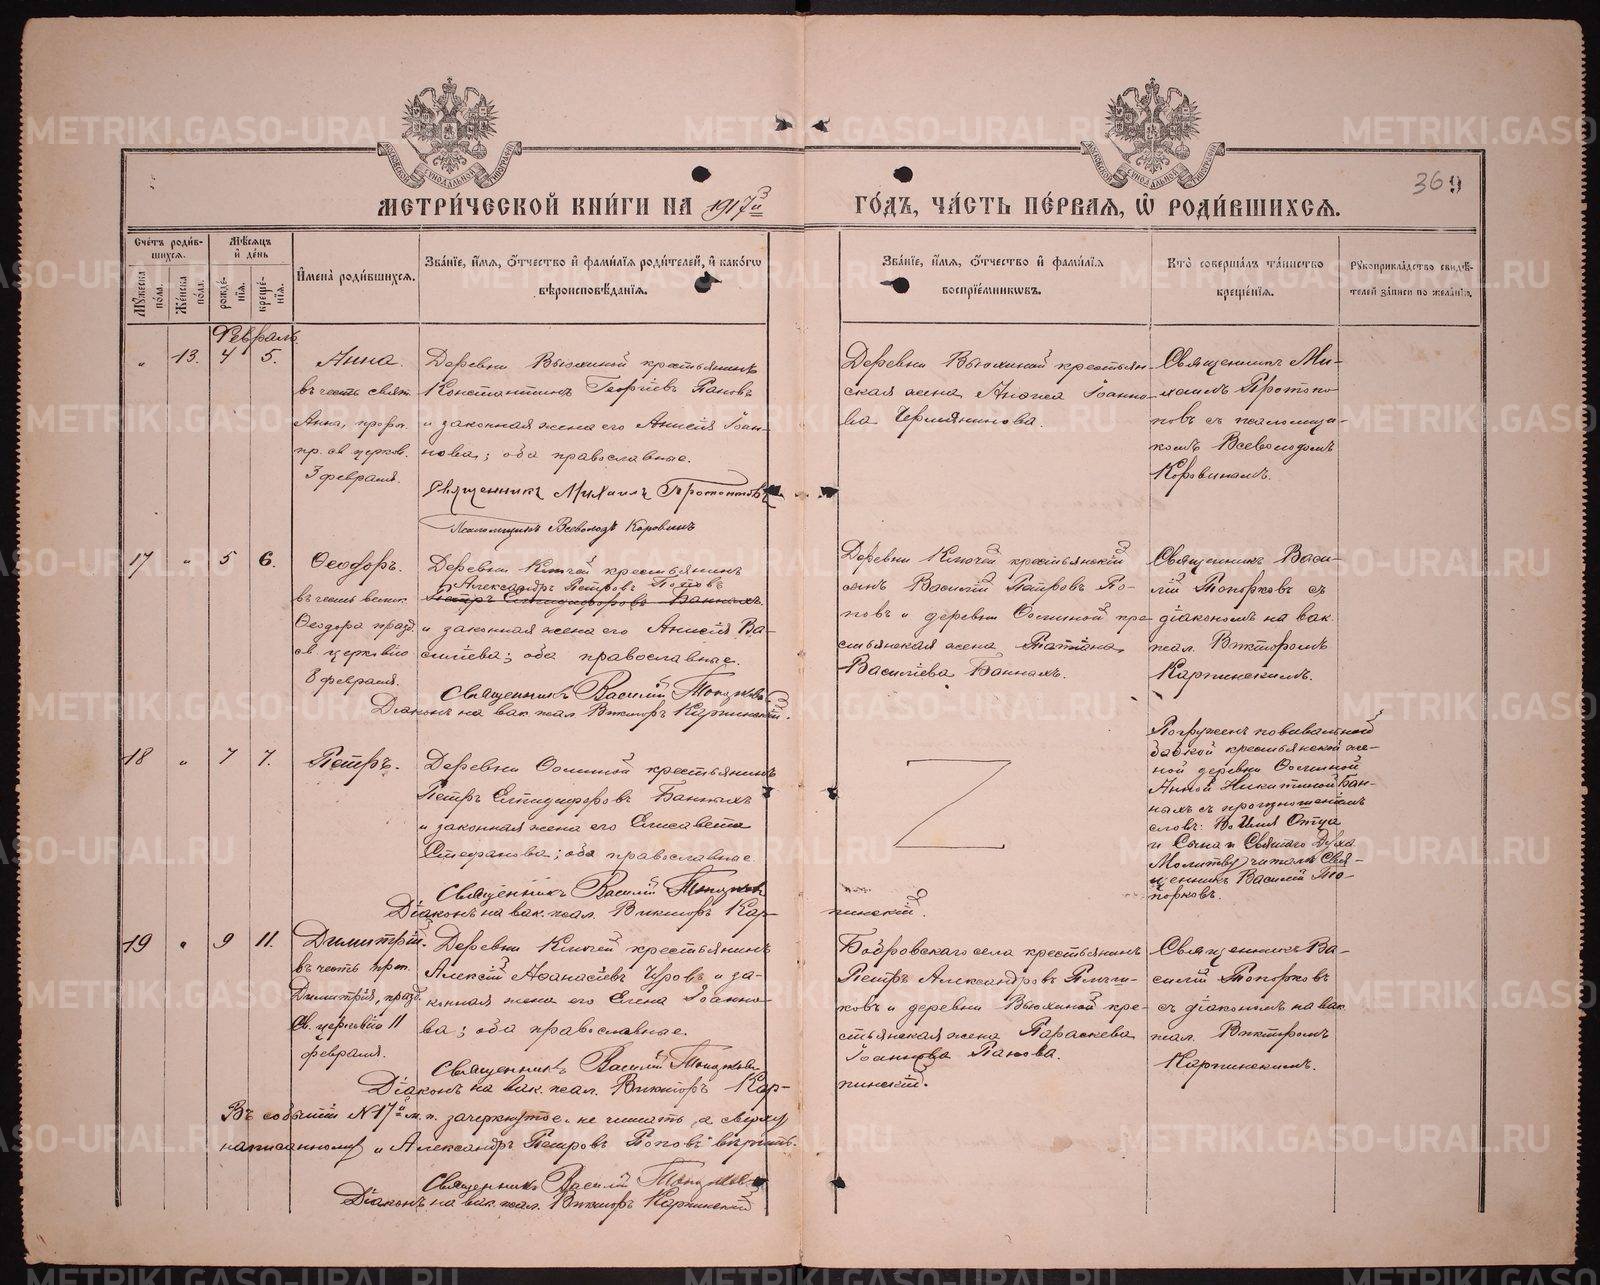 МЕТРИ́ЧЕСКОЙ КНИ́ГИ НА 1917й ГО́ДЪ, ЧА́СТЬ ПЕ́РВАЯ, Ѡ РОДИ́ВШИХСЯ.
369
Счетъ роди́вшихся.
Мꙋжеска по́ла.
Же́нска по́ла.
Мѣ́сяцъ и де́нь
рожде́нїя.
креще́нїя.
Имена̀ роди́вшихся.
Зва́нїе, и́мя, о́тчество и фами́лїя роди́телей, и како́гѡ вѣроисповѣ́данїя.
Зва́нїе, и́мя, о́тчество и фами́лїя воспрїе́мниковъ.
Кто̀ соверша́лъ та́инство креще́нїя.
Рꙋкоприкла́дство свидѣ́телей за́писи по жела́нїю.
Февраль
„ 13. 4 5.
Анна.
въ честь свят.
Анны, пророч.
пр. св. церков.
3 февраля.
Деревни Вьюхиной крестьянинъ
Константинъ Георгіевъ Пановъ
и законная жена его Анисія Іоан-
нова; оба православные.
Священникъ Михаилъ Протопоповъ
Псаломщикъ Всеволодъ Коровинъ
Деревни Вьюхиной крестьян-
ская жена Анфиса Іоанно-
ва Чермянинова.
Священникъ Ми-
хаилъ Протопо-
повъ съ псаломщи-
комъ Всеволодомъ
Коровинымъ.
17 „ 5 6.
Ѳеодоръ.
въ честь велик.
Ѳеодора празд.
св. церковію
8 февраля.
Деревни Ключей крестьянинъ
Александръ Петровъ Поповъ
Петръ Елпидифоровъ Банныхъ
и законная жена его Анисія Ва-
силіева; оба православные.
Священникъ Василій Топорковъ
Діаконъ на вак. псал. Викторъ Карпинскій.
Деревни Ключей крестьянскій
сынъ Василій Петровъ По-
повъ и деревни Осиной кре-
стьянская жена Татіана
Василіева Банныхъ.
Священникъ Васи-
лій Топорковъ съ
діакономъ на вак.
псал. Викторомъ
Карпинскимъ.
18 „ 7 7.
Петръ.
Деревни Осиной крестьянинъ
Петръ Елпидифоровъ Банныхъ
и законная жена его Елисавета
Стефанова; оба православные.
Священникъ Василій Топорковъ
Діаконъ на вак. псал. Викторъ Кар-
пинскій.
Погруженъ повивальной
бабкой крестьянской же-
ной деревни Осиной
Анной Никитиной Бан-
ныхъ съ произношеніемъ
словъ: Во Имя Отца
и Сына и Святаго Духа
Молитву читалъ Свя-
щенникъ Василій То-
порковъ.
19 „ 9 11.
Димитрій.
въ честь прп.
Димитрія, празд.
св. церковію 11
февраля.
Деревни Ключей крестьянинъ
Алексій Аѳанасіевъ Чуровъ и за-
конная жена его Елена Іоанно-
ва; оба православные.
Священникъ Василій Топорковъ
Діаконъ на вак. псал. Викторъ Кар-
пинскій.
Бобровскаго села крестьянинъ
Петръ Александровъ
и деревни Вьюхиной кре-
стьянская жена Параскева
Іоаннова Панова.
Священникъ Ва-
силій Топорковъ
съ діакономъ на вак.
псал. Викторомъ
Карпинскимъ.
Въ событіи №17й м. п. зачеркнутое не читать, а сверху
написанному „Александръ Петровъ Поповъ“ вѣрить.
Священникъ Василій Топорковъ
Діаконъ на вак. псал. Викторъ Карпинскій
METRIKI.GASO-URAL.RU